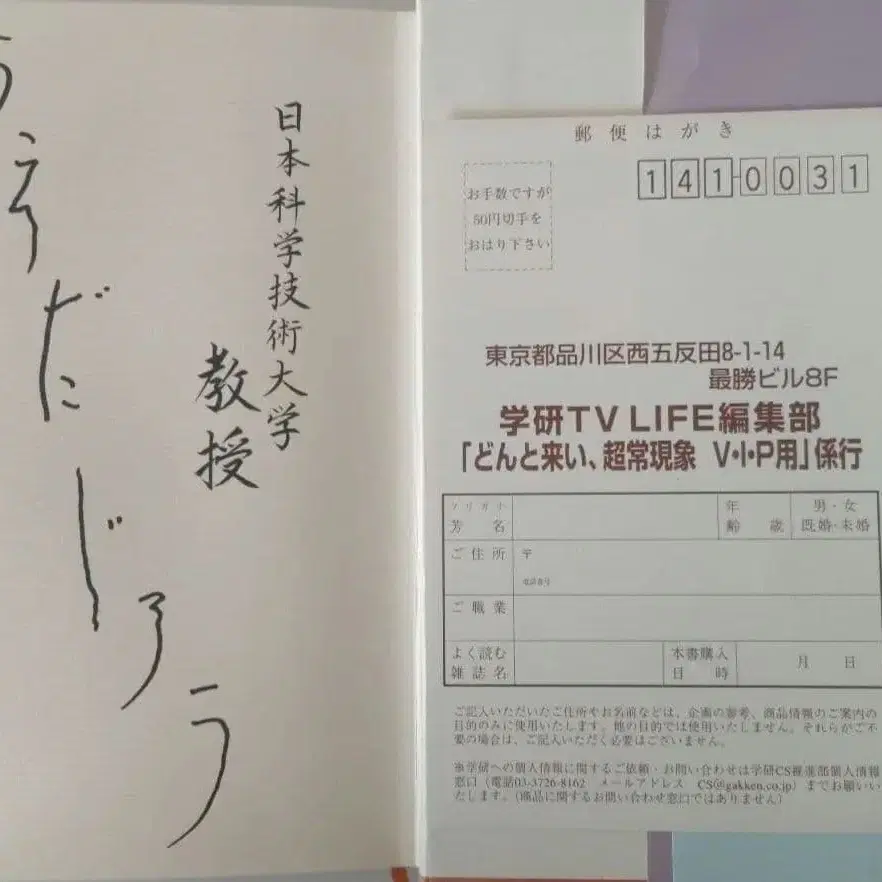 日本科学技術大学
教授
うえだじろう
郵便はがき
1410031
お手数ですが
50円切手を
おはり下さい
東京都品川区西五反田8-1-14
最勝ビル8F
学研TV LIFE編集部
「どんと来い、超常現象 V・I・P用」係行
フリガナ
芳名
年齢 歳
男・女
既婚・未婚
ご住所
〒
電話番号
ご職業
よく読む
雑誌名
本書購入
日時
月 日
ご記入いただいたご住所やお名前などは、企画の参考、商品情報のご案内の
目的のみに使用いたします。他の目的では使用いたしません。それらがご不
要の場合は、ご記入いただく必要はございません。
※学研への個人情報に関するご依頼・お問い合わせは学研CS推進部個人情報
窓口（電話03-3726-8162 メールアドレス CS@gakken.co.jp）までお願いい
たします。（商品に関するお問い合わせ窓口ではありません）